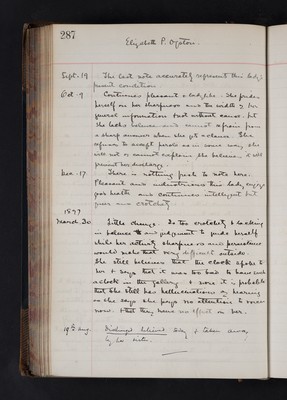 287
Elizabeth P.
Sept. 19 The last note accurately represents this lady's
present condition.
Oct. 9 Continues pleasant & ladylike. She prides
herself on her sharpness and the width of her
general information & not without cause. but
She lacks balance and cannot refrain from
a sharp answer when she gets a chance. She
refuses to accept parole as in some way she
will not or cannot explain she believes it will
prevent her discharge.
Dec. 17 There is nothing fresh to note here.
Pleasant and industrious this lady enjoys
good health and continues intelligent but
and crotchety.
1899
March. 30. Little change. Is too crotchety & lacking
in balance & judgement to guide herself
while her activity sharpness and
would make that very difficult outside.
She still believes that the clock spoke to
her & says that it was too bad to have such
a clock in the gallery & more it is probable
that she still has hallucinations of hearing
as she says she pays no attention to voices
now & that they have no effect on her.
19th Aug. Discharged relieved today & taken away
by her sister.